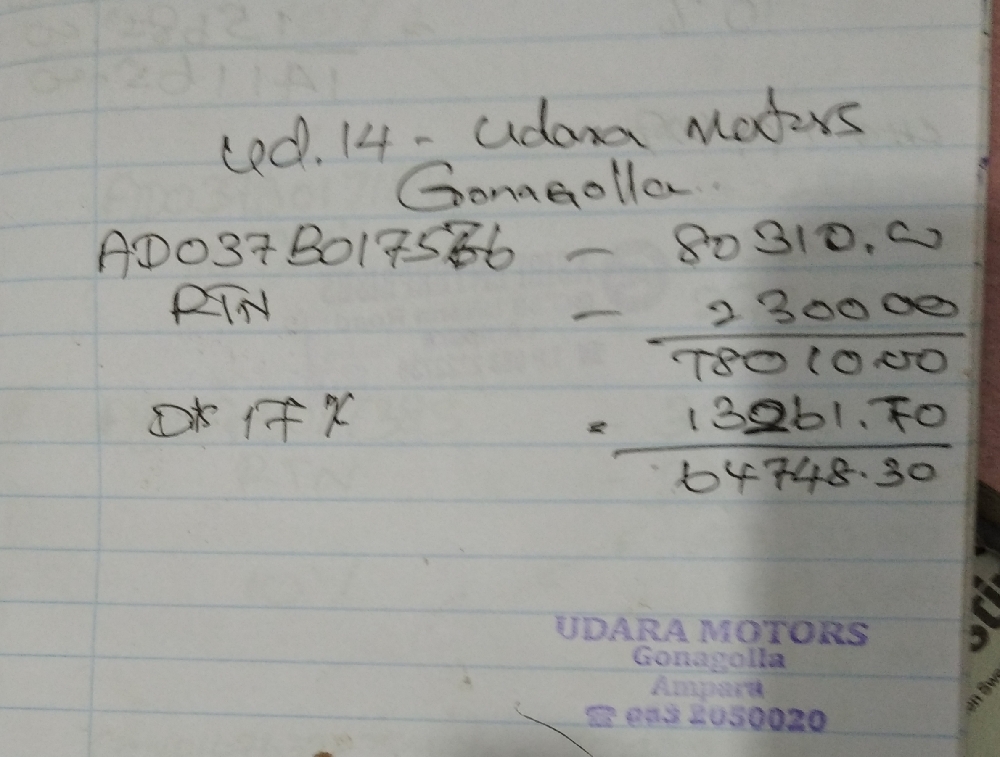 Ud.14 - Udara Motors
Gonagolla
AD037B017566 - 80310.00
RTN - 2300 00
78010.00
Dis 17% = 13261.70
64748.30
UDARA MOTORS
Gonagolla
Ampara
☎ 063 2050020